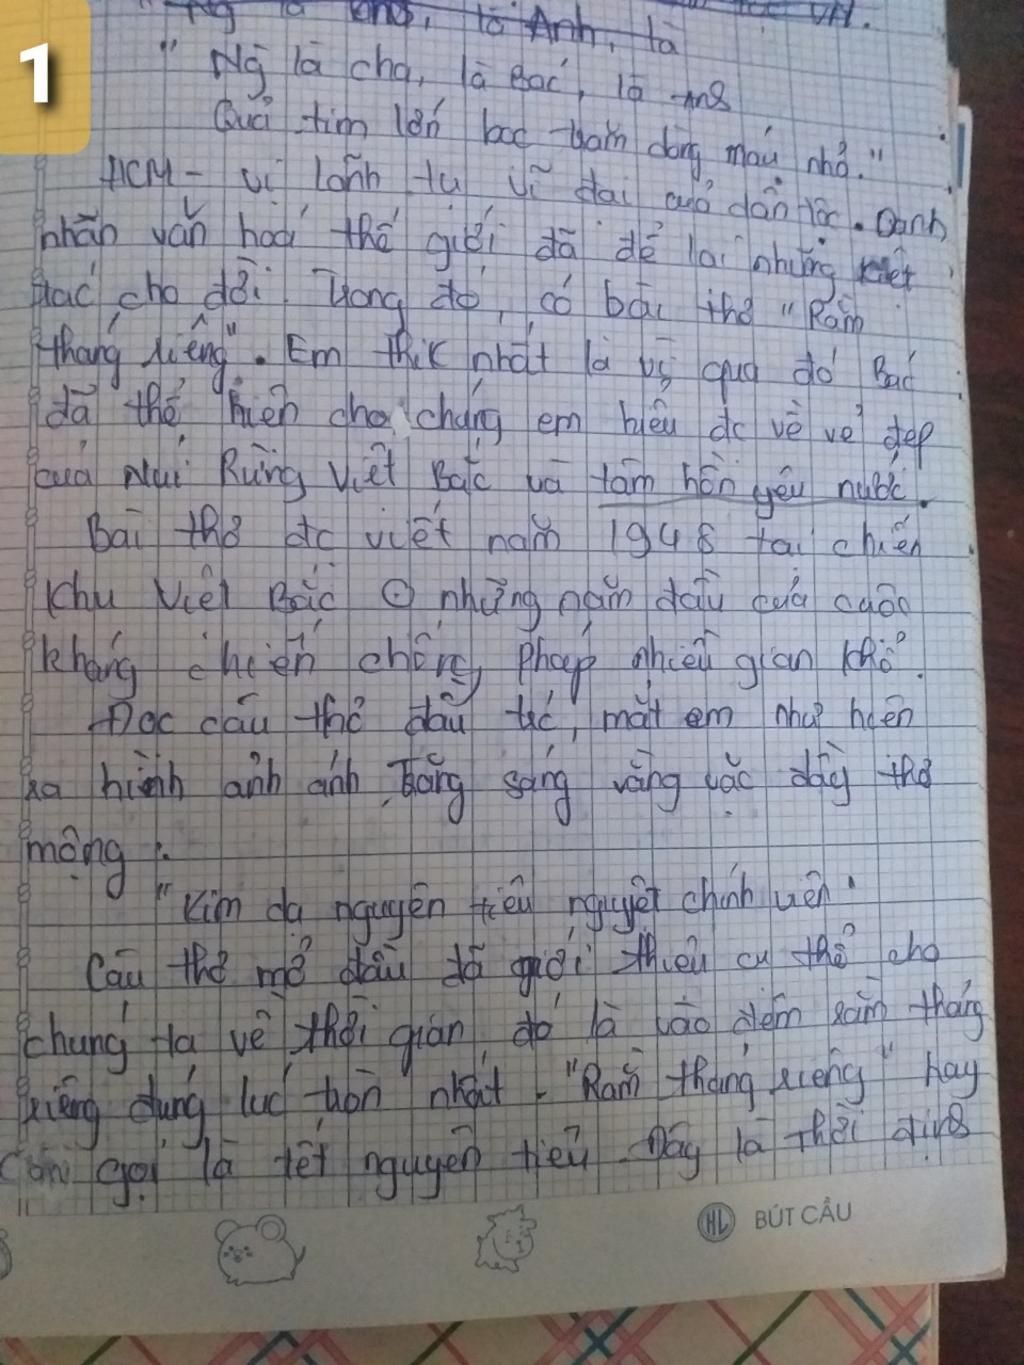 1
là Anh, là
VH.
"Ng là cha, là Bác, là Anh
Quả tim lớn bọc trăm dòng máu nhỏ."
HCM - vị lãnh tụ vĩ đại của dân tộc. Danh
nhân văn hoá thế giới đã để lại những kiệt
tác cho đời. Trong đó, có bài thơ "Rằm
tháng riêng". Em thik nhất là vì qua đó Bác
đã thể hiện cho chúng em hiểu đc về vẻ đẹp
của Núi Rừng Việt Bắc và tâm hồn yêu nước.
Bài thơ đc viết năm 1948 tại chiến
khu Việt Bắc ở những năm đầu của cuộc
kháng chiến chống Pháp nhiều gian khổ.
Đọc câu thơ đầu tiên, mắt em như hiện
ra hình ảnh ánh trăng sáng vằng vặc đầy thơ
mộng:
"Kim dạ nguyên tiêu nguyệt chính viên"
Câu thơ mở đầu đã giới thiệu cụ thể cho
chúng ta về thời gian đó là vào đêm rằm tháng
riêng đúng lúc tròn nhất. "Rằm tháng riêng" hay
còn gọi là tết nguyên tiêu. Đây là thời
HL BÚT CÂU